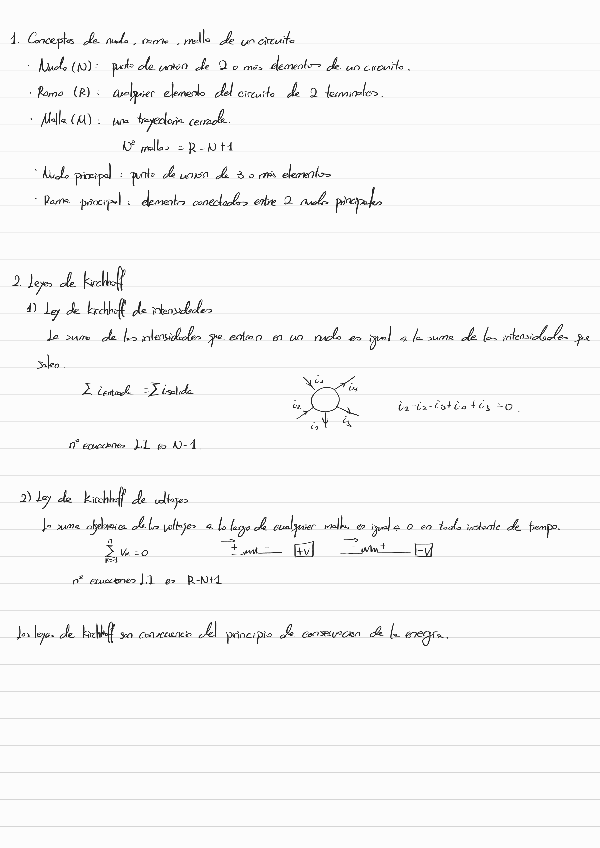 1. Conceptos de nudo, rama, malla de un circuito
· Nudo (N): punto de unión de 2 o más elementos de un circuito.
· Rama (R): cualquier elemento del circuito de 2 terminales.
· Malla (M): una trayectoria cerrada.
Nº mallas = R-N+1
· Nudo principal: punto de unión de 3 o más elementos
· Rama principal: elementos conectados entre 2 nudos principales
2. Leyes de Kirchhoff
1) Ley de Kirchhoff de intensidades
La suma de las intensidades que entran en un nudo es igual a la suma de las intensidades que
salen.
Σ ientrada = Σ isalida
i₁ i₄
i₂ i₃ i₅
nº ecuaciones L.I es N-1
2) Ley de Kirchhoff de voltajes
La suma algebraica de los voltajes a lo largo de cualquier malla es igual a 0 en todo instante de tiempo.
Σ Vₖ = 0 + - +V - + -V
nº ecuaciones L.I es R-N+1
Las leyes de Kirchhoff son consecuencia del principio de conservación de la energía.